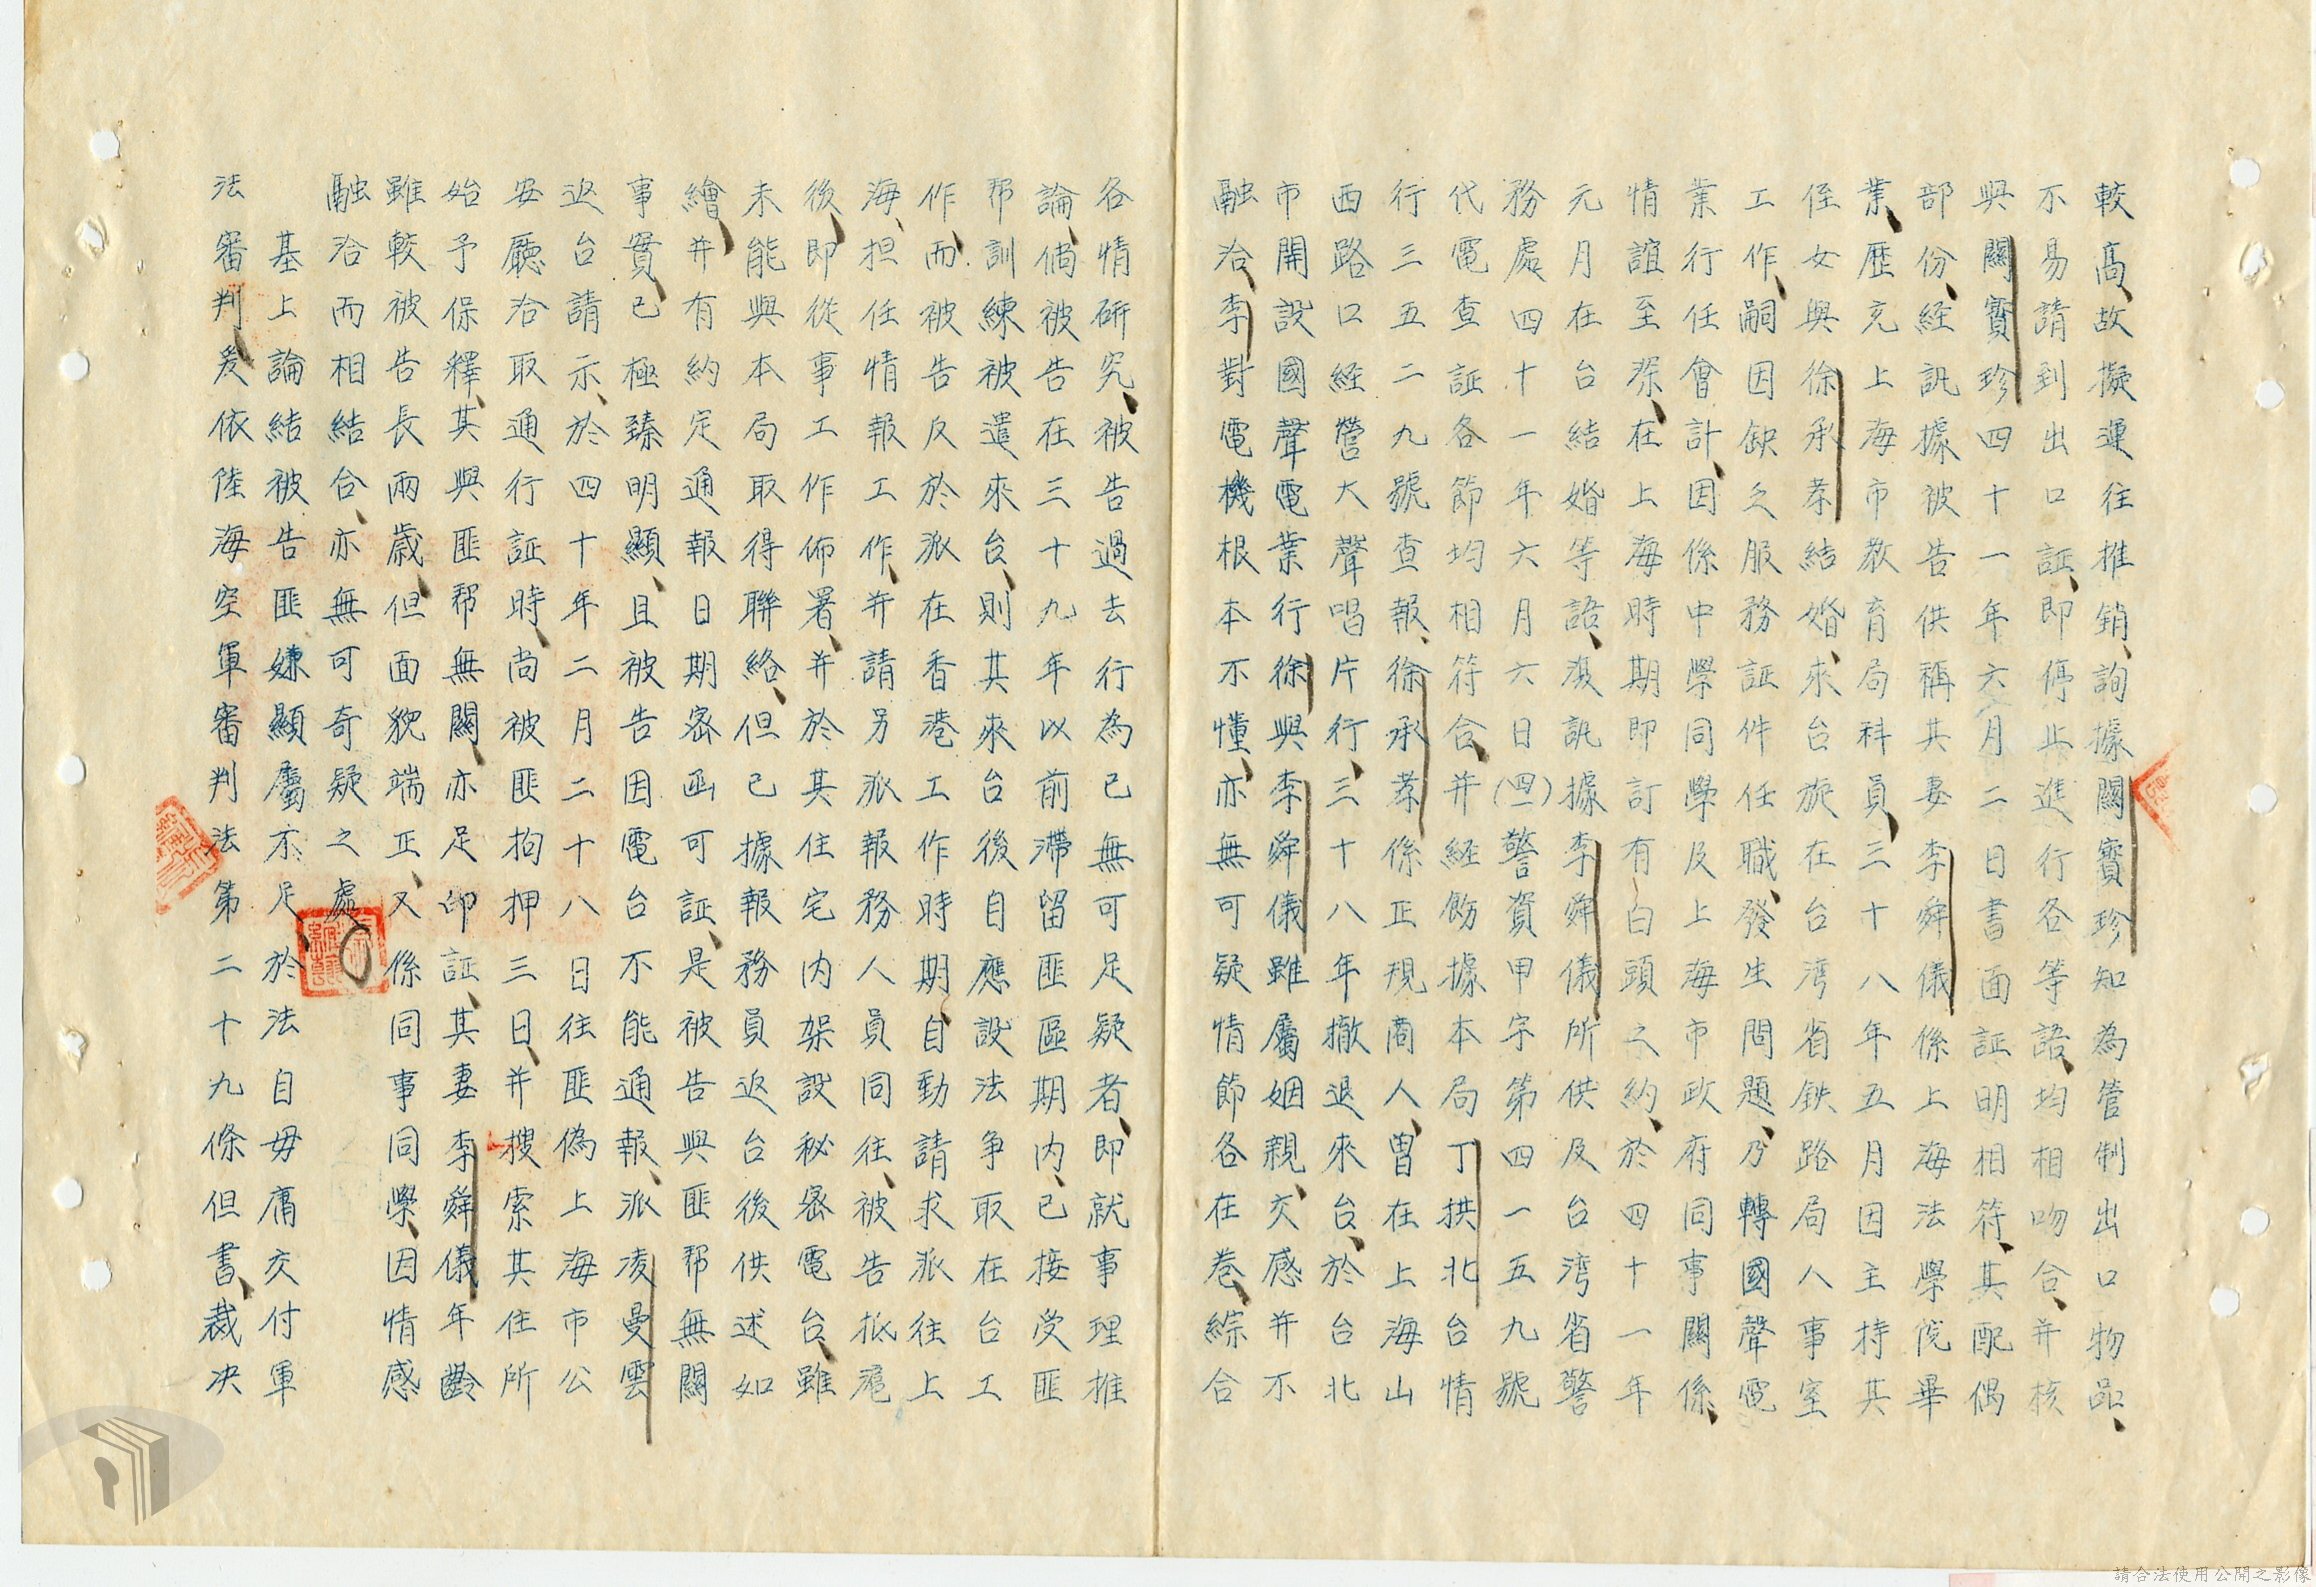 較高、故擬運往推銷、詢據關寶珍知為管制出口物品、
不易請到出口証、即停止進行各等語、均相吻合、并核
與關寶珍四十一年六月二日書面証明相符、其配偶
部份、経訊據被告供稱其妻李舜儀係上海法學院畢
業、歷充上海市教育局科員、三十八年五月因主持其
侄女與徐承棻結婚、來台旋在台湾省鉄路局人事室
工作、嗣因缺乏服務証件任職、發生問題、乃轉國聲電
業行任會計、因係中學同學及上海市政府同事關係、
情誼至深、在上海時期即訂有白頭之約、於四十一年
元月在台結婚等語、復訊據李舜儀所供及台湾省警
務處四十一年六月六日(四一)警資甲字第四一五九號
代電查証各節均相符合、并経飭據本局丁拱北台情
行三五二九號查報、徐承棻係正現商人、曾在上海山
西路口経營大聲唱片行、三十八年撤退來台、於台北
市開設國聲電業行、徐與李舜儀雖屬姻親、交感并不
融洽、李對電機根本不懂、亦無可疑情節各在卷、綜合
各情研究、被告過去行為已無可足疑者、即就事理推
論、倘被告在三十九年以前滯留匪區期內、已接受匪
帮訓練被遣來台、則其來台後自應設法争取在台工
作、而被告反於派在香港工作時期、自動請求派往上
海、担任情報工作、并請另派報務人員同往、被告抵滬
後、即從事工作佈署、并於其住宅內架設秘密電台、雖
未能與本局取得聯絡、但已據報務員返台後供述如
繪、并有約定通報日期密函可証、是被告與匪帮無關
事實、已極臻明顯、且被告因電台不能通報、派凌曼雲
返台請示、於四十年二月二十八日往匪偽上海市公
安廳洽取通行証時、尚被匪拘押三日、并搜索其住所
始予保釋、其與匪帮無關、亦足印証、其妻李舜儀年齡
雖較被告長兩歲、但面貌端正、又係同事同學、因情感
融洽而相結合、亦無可奇疑之處
基上論結被告匪嫌顯屬不足、於法自毋庸交付軍
法審判、爰依陸海空軍審判法第二十九條但書、裁决
請合法使用公開之影像